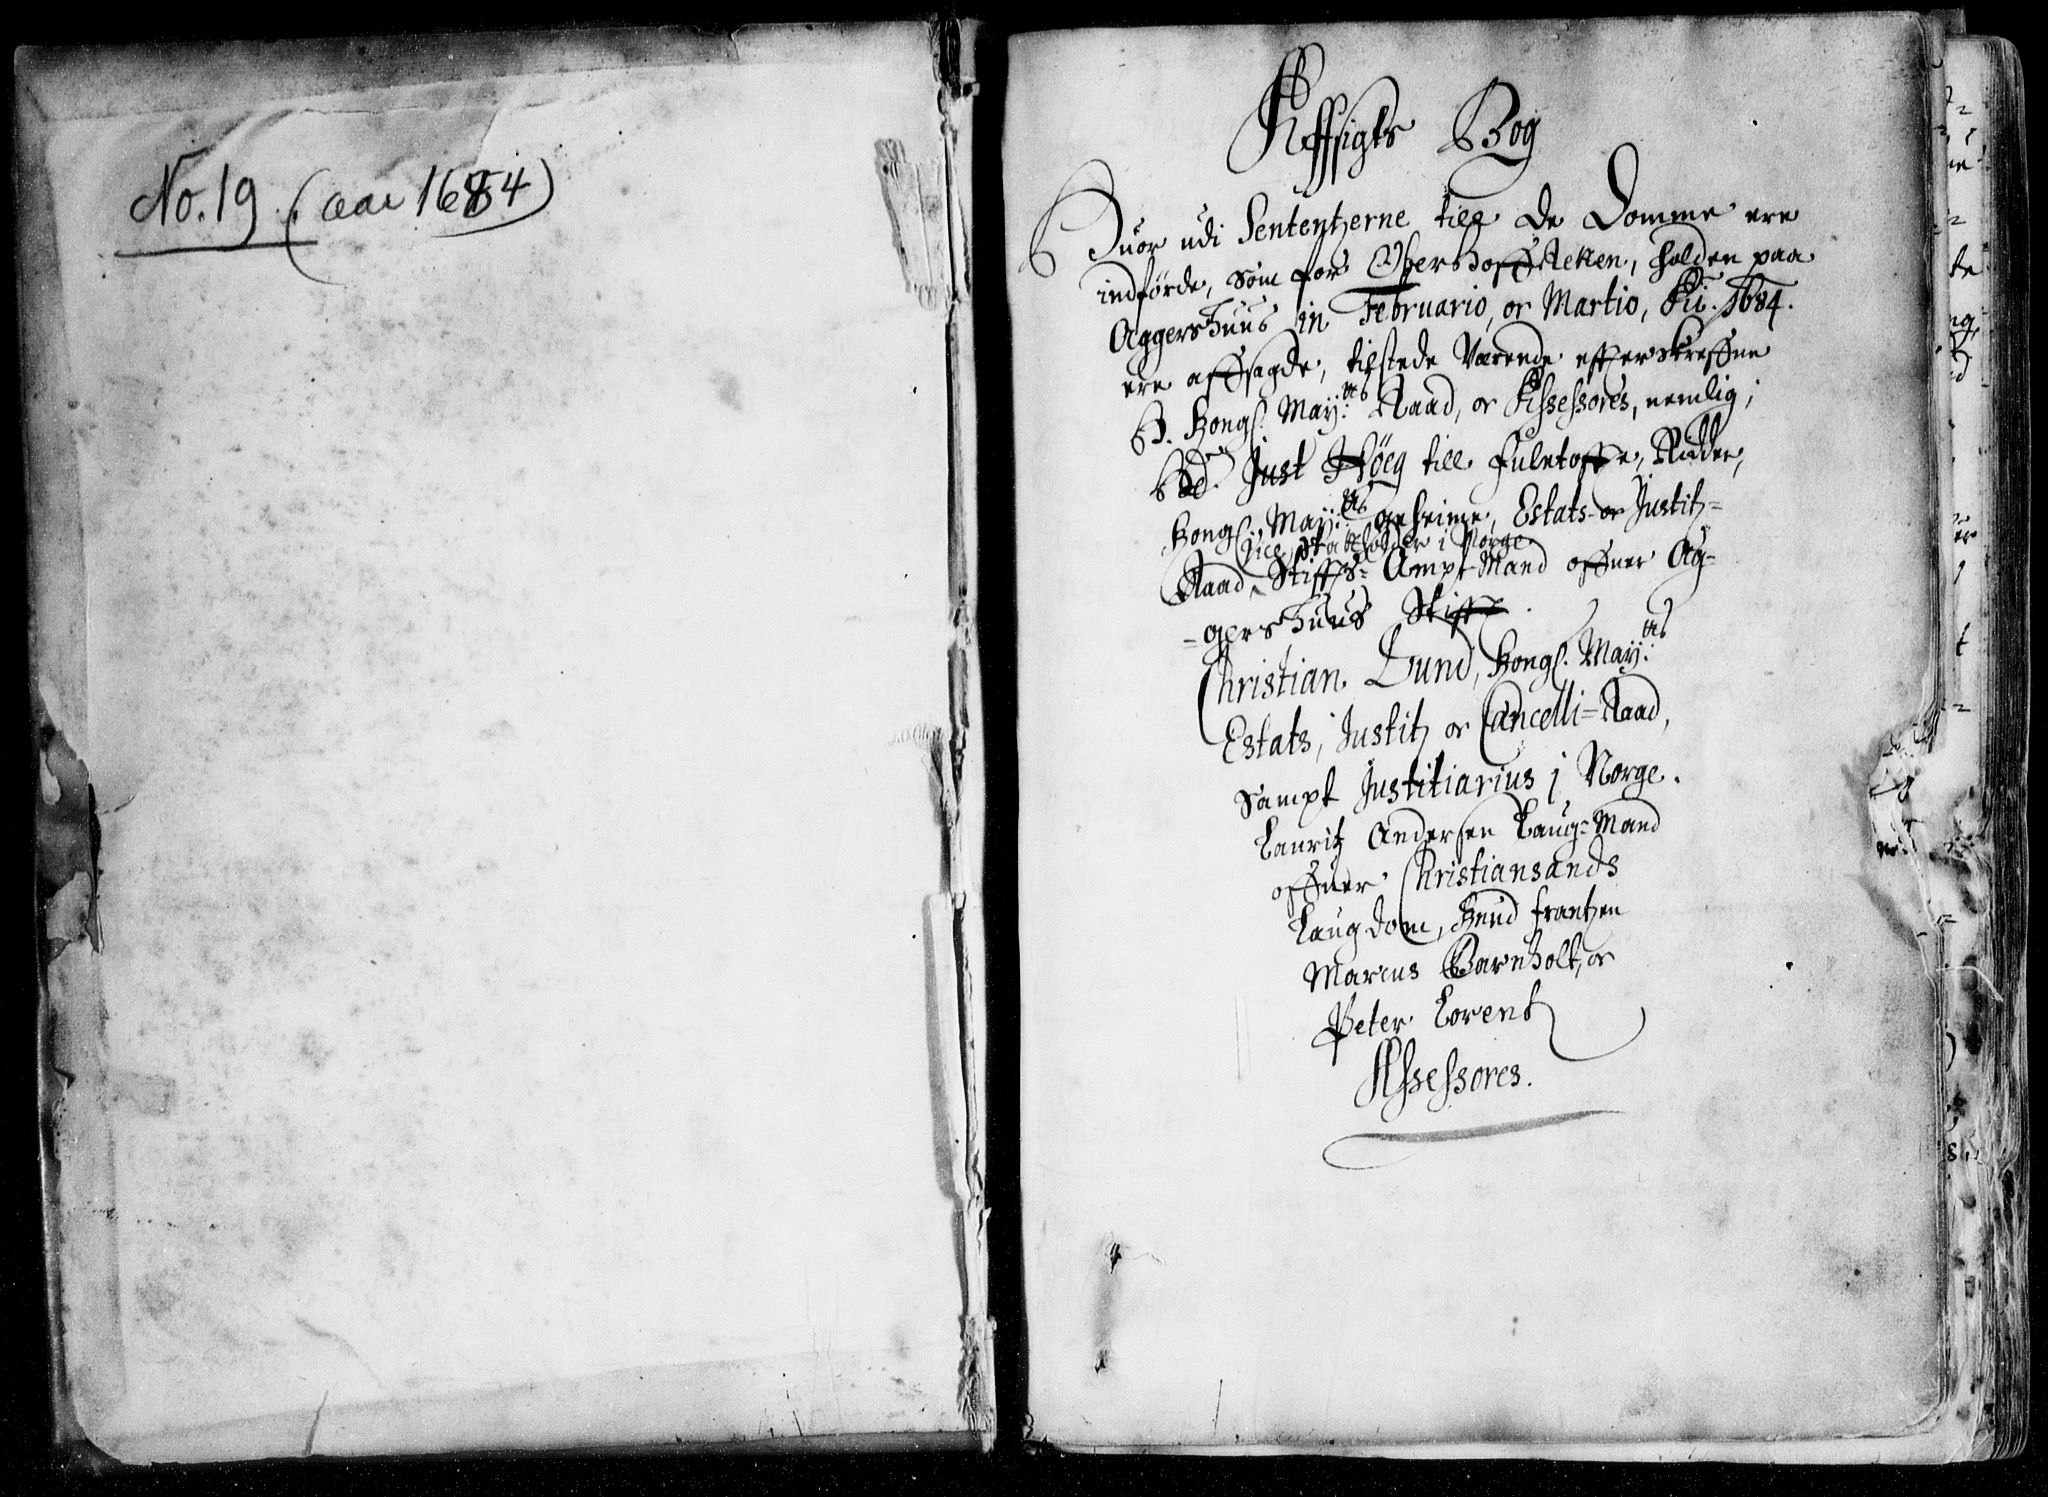 No. 19 (aar 1684)
Affsigts Bog
Huor udi Sententzerne till de Domme ere
indförde, som for OberHoffRetten, holden paa
AggersHuus in Februario, oc Martio, A.i. 1684.
ere affsagde, tilstede Værende effterskreffne
H. Kongl. May:ts Raad, oc Assessores, nemlig;
Hr. Just Höeg till Fuletoffte, Ridder,
Kongl. May:ts geheime, Estats- oc Justitz=
Vice Statholder i Norge
Raad, Stiffts= AmptMand offuer Ag=
=gersHuus Stifft.
Christian Lund, Kongl. May:ts
Estats, Justitz oc Cancelli=Raad,
Sampt Justitiarius j Norge.
Lauritz Andersen Laug=Mand
offuer Christiansands
Laugdom, Knud Frantzen
Marcus Barnholt, oc
Peter Lorentz
Assessores.